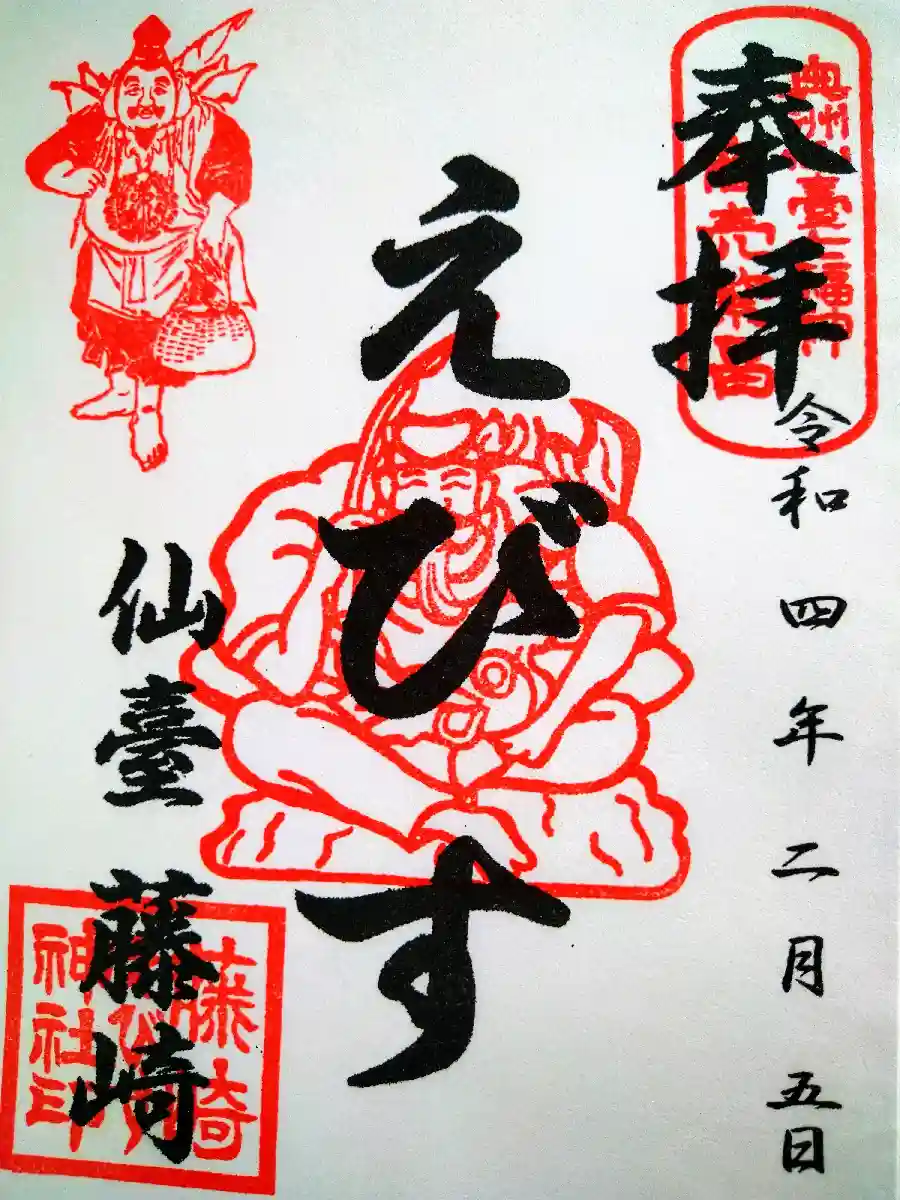 奉拝
奥州仙臺七福神
商売繁昌
令和四年二月五日
えびす
仙臺藤崎
藤崎
えびす
神社印